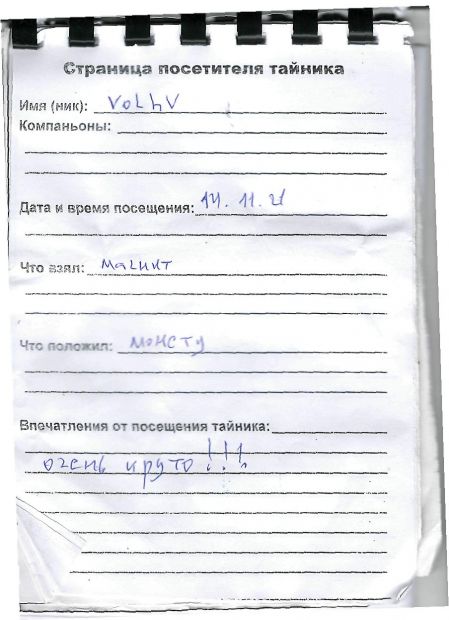 Страница посетителя тайника
Имя (ник): VoLhV
Компаньоны:
Дата и время посещения: 14. 11. 21
Что взял: магнит
Что положил: монсту
Впечатления от посещения тайника:
очень круто!!!